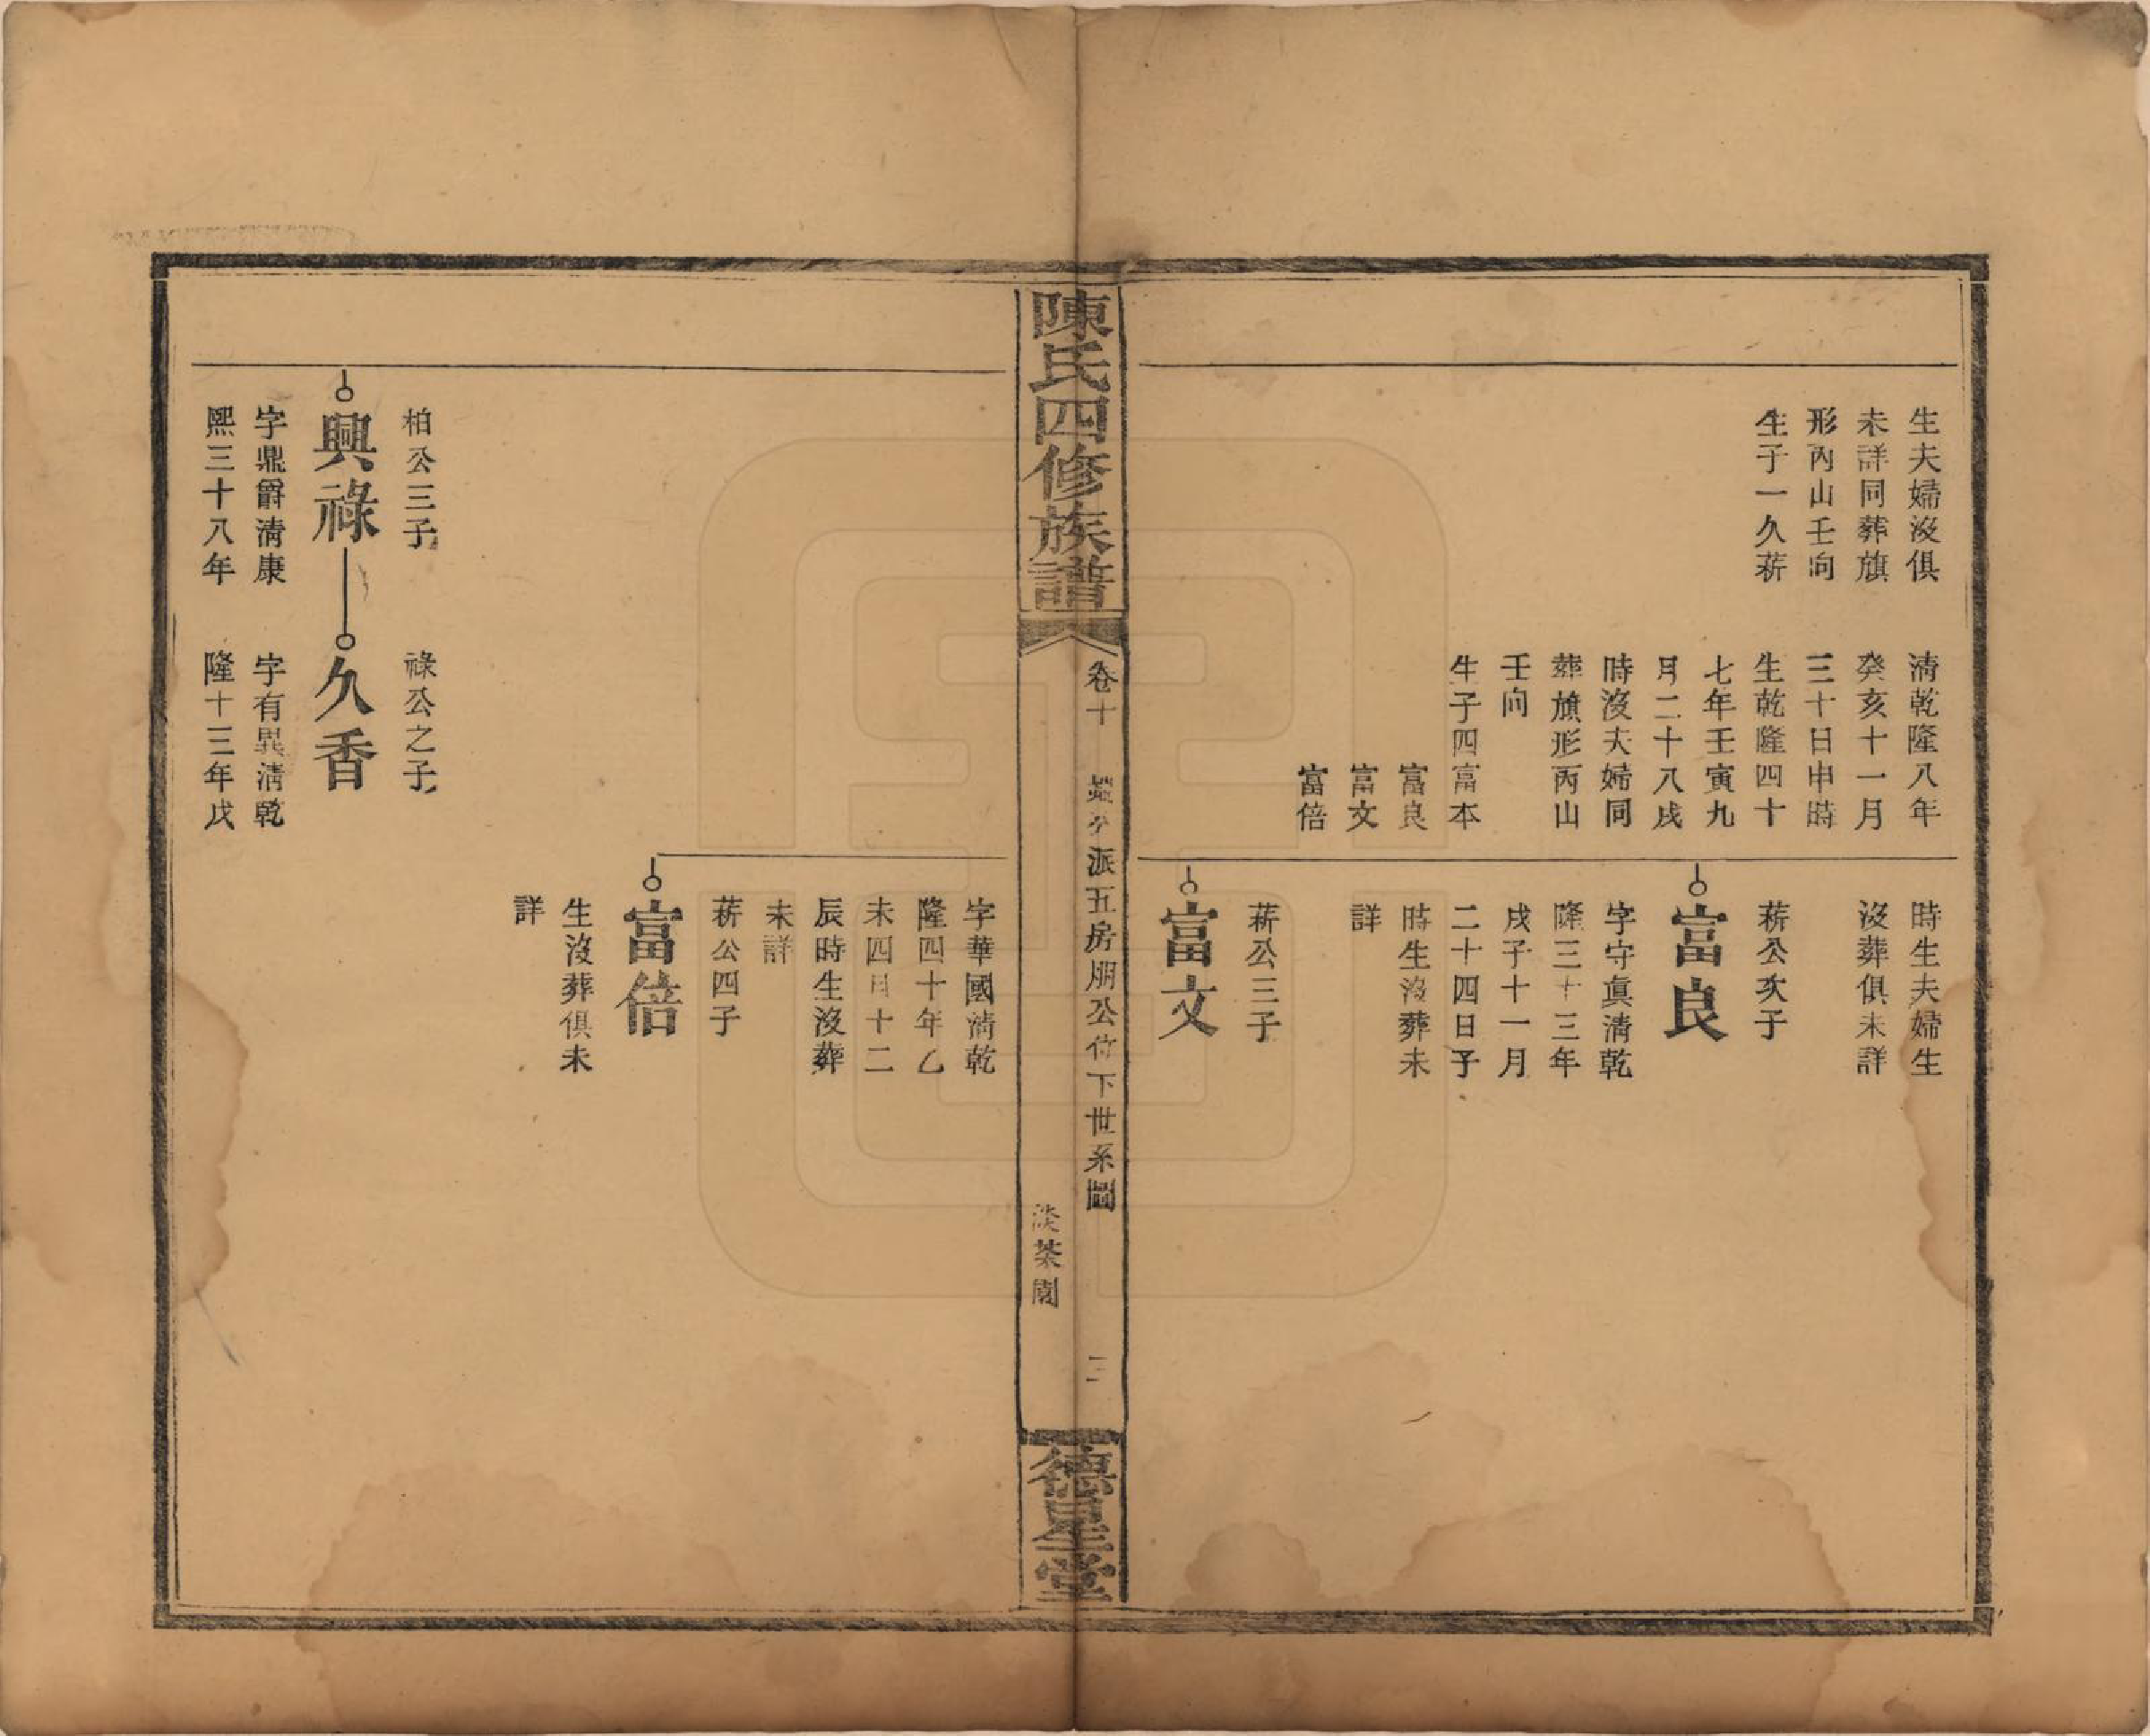 生夫婦沒俱
未詳同葬旗
形丙山壬向
生子一久薪
清乾隆八年
癸亥十一月
三十日申時
生乾隆四十
七年壬寅九
月二十八戌
時沒夫婦同
葬旗形丙山
壬向
生子四富本
富良
富文
富倍
時生夫婦生
沒葬俱未詳
薪公次子
富良
字守眞清乾
隆三十三年
戊子十一月
二十四日子
時生沒葬未
詳
薪公三子
富文
陳氏四修族譜
卷十
公派五房朋公位下世系圖
三
淡茶園
德星堂
字華國清乾
隆四十年乙
未四月十二
辰時生沒葬
未詳
薪公四子
富倍
生沒葬俱未
詳
柏公三子
興祿
字鼎爵清康
熙三十八年
祿公之子
久香
字有異清乾
隆十三年戊